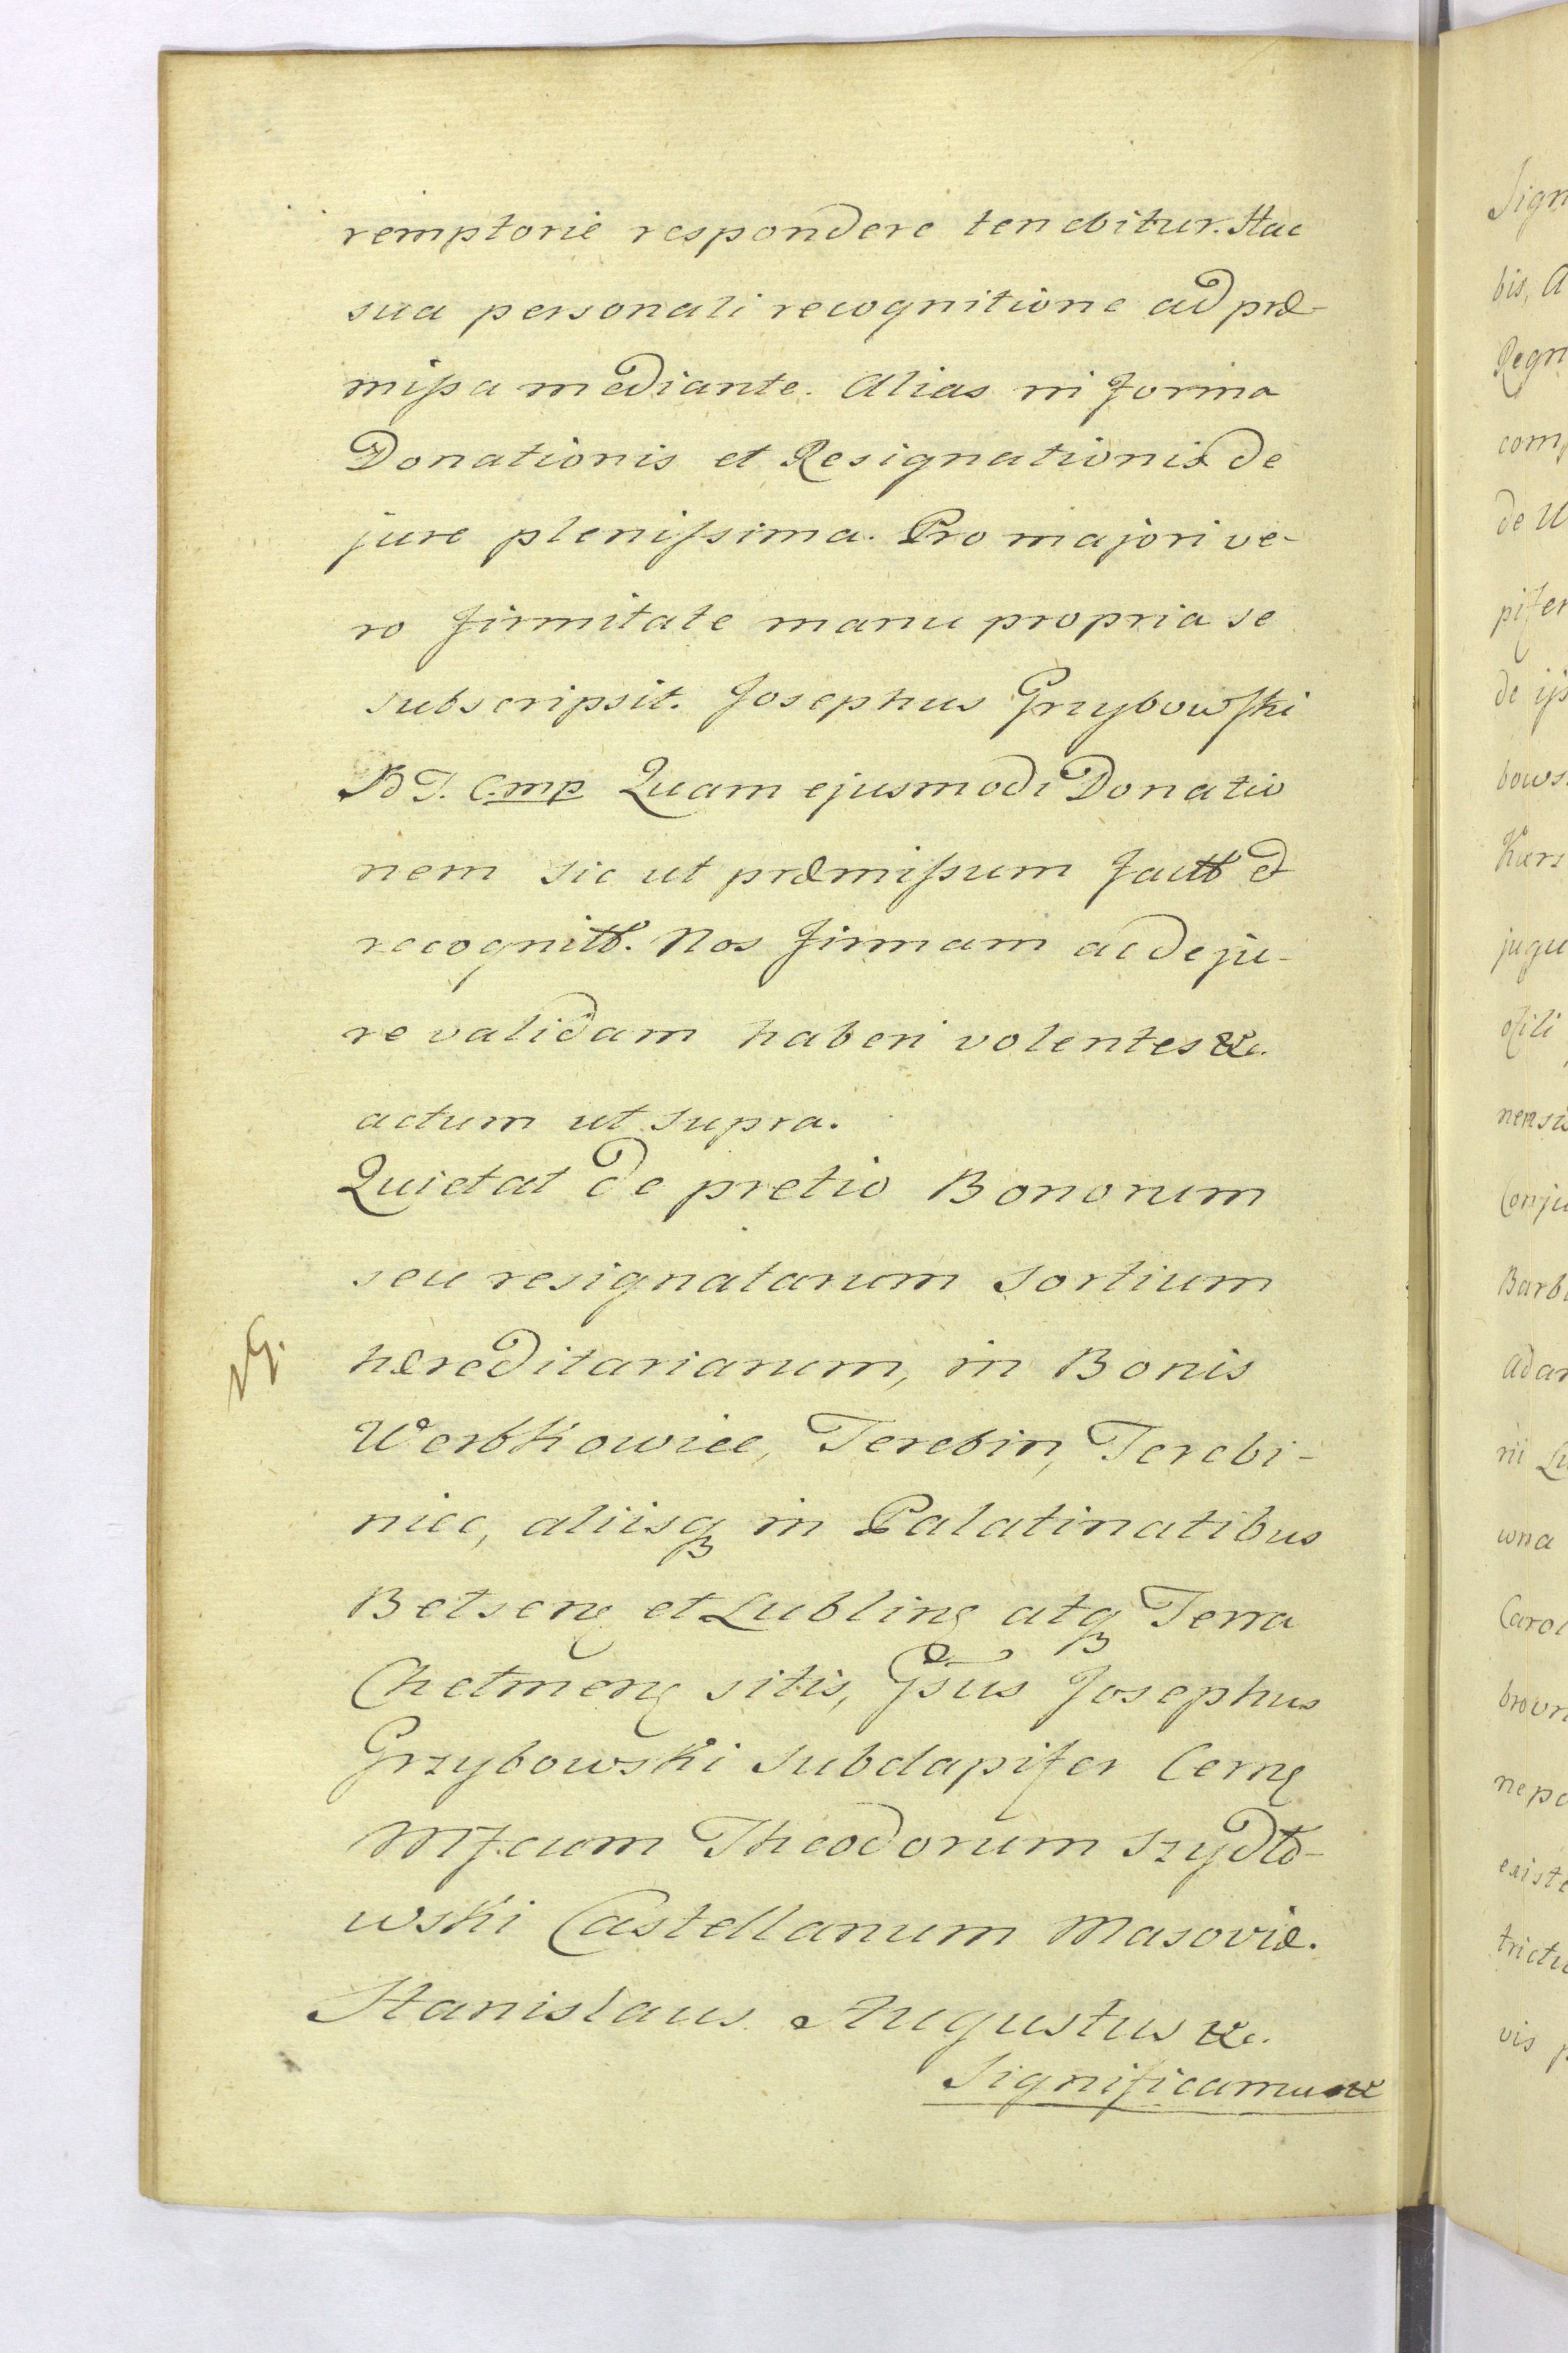 remptorie respondere tenebitur. Hac
sua personali recognitione ad præ-
missa mediante. Alias in forma
Donationis et Resignationis de
jure plenissima. Pro majori ve-
ro firmitate manu propria se
subscripsit. Josephus Grzybowski
P. T. C. mp Quam ejusmodi Donatio
nem sic ut præmissum factł et
recognitł. Nos firmam ac de ju-
re validam haberi volentes &c.
actum ut supra.
Quietat de pretio Bonorum
seu resignatarum Sortium
hæreditariarum, in Bonis
Werbkowice, Terebin, Terebi-
niec, aliisq in Palatinatibus
Bełzeng et Lubling atq Terra
Chełmeng sitis, Gsus Josephus
Grzybowski Subdapifer Cerng
Mfcum Theodorum Szydło-
wski Castellanum Masoviæ.
Stanislaus Augustus &c.
Significamus &
Sign
bis, A
Regn
com
de U
pifer
de ijs
bows
Kurs
jugu
nensi
Conju
Barb
adam
rii Lu
wna
Carol
brown
nepo
existe
trictu
vis p